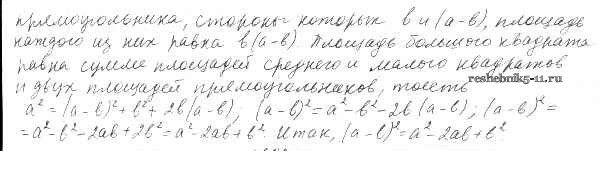 прямоугольника, стороны которых b и (a-b), площадь
каждого из них равна b(a-b). Площадь большого квадрата
равна сумме площадей среднего и малого квадратов
и двух площадей прямоугольников, то есть
reshebnik5-11.ru
a² = (a-b)² + b² + 2b(a-b); (a-b)² = a² - b² - 2b(a-b); (a-b)² =
= a² - b² - 2ab + 2b² = a² - 2ab + b². Итак, (a-b)² = a² - 2ab + b²